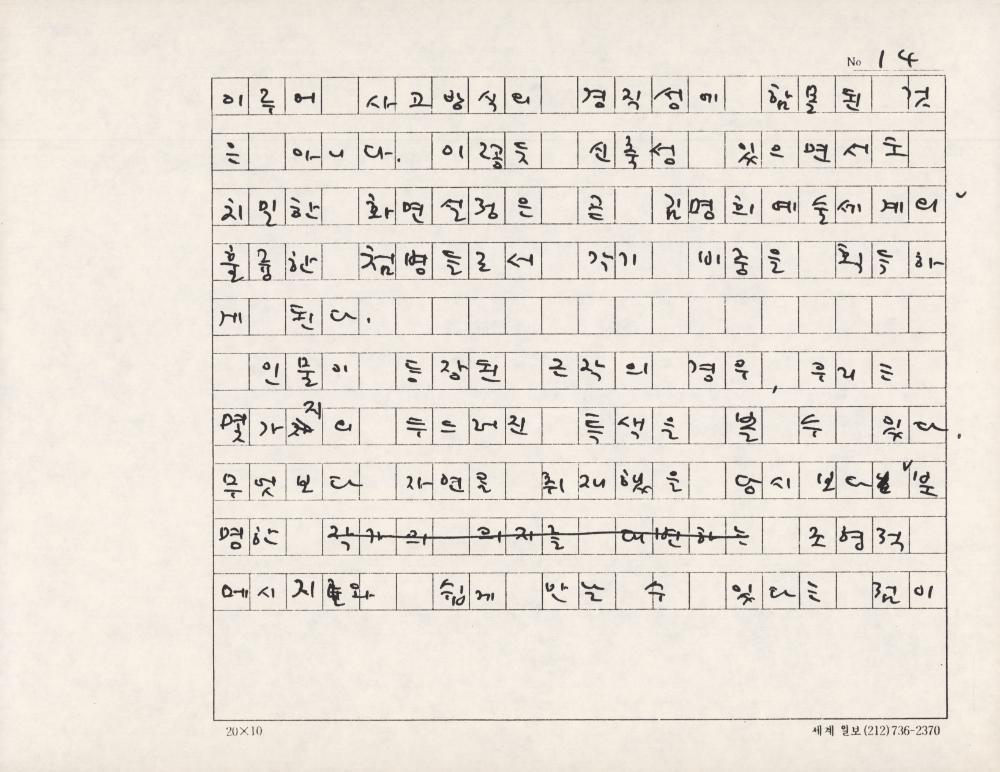 No 14
이루어 사고방식의 경직성에 함몰된 것
은 아니다. 이렇듯 신축성 있으면서도
치밀한 화면설정은 곧 김명희예술세계의
훌륭한 첨병들로서 각기 비중을 획득하
게 된다.
인물이 등장된 근작의 경우, 우리는
몇가지의 두드러진 특색을 볼 수 있다.
무엇보다 자연을 취재했을 당시보다 분
명한 작가의 의지를 대변하는 조형적
메시지와 쉽게 만날 수 있다는 점이
20×10
세계일보 (212)736-2370